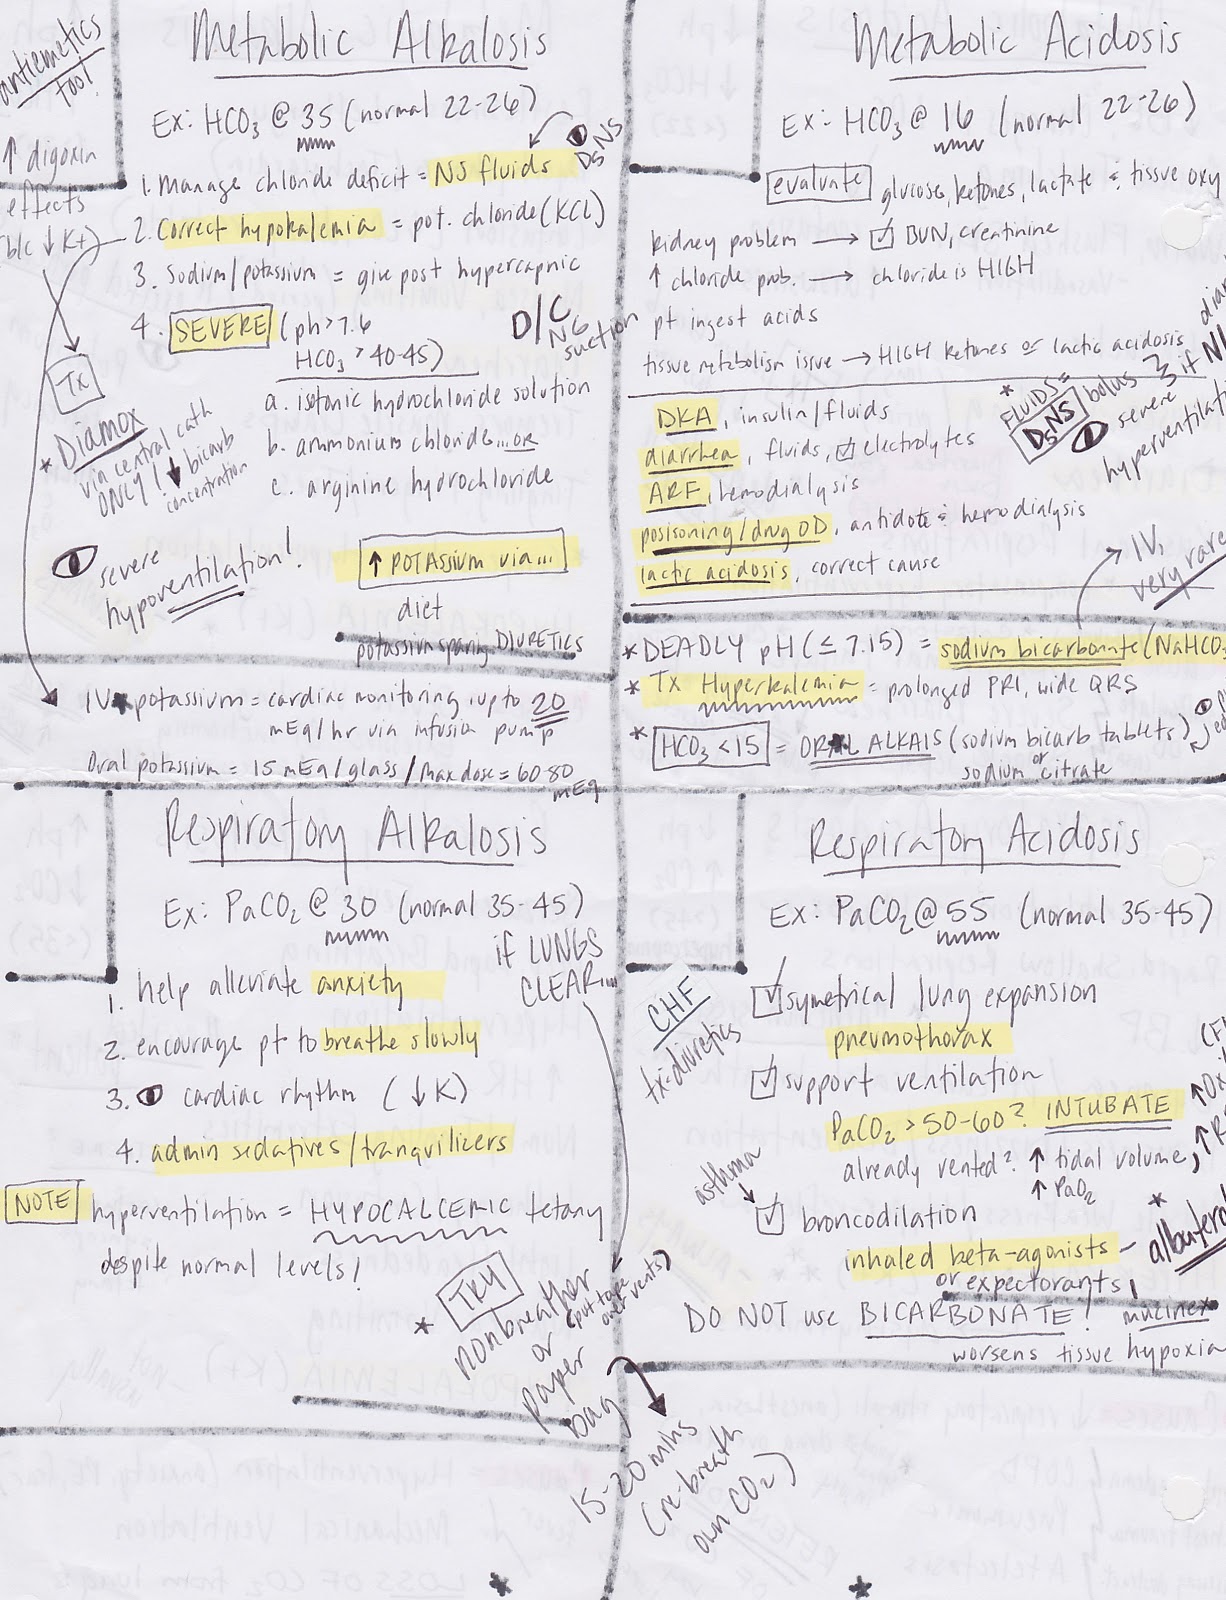 antiemetics
too!
↑ digoxin
effects
(b/c ↓ K+)
Metabolic Alkalosis
Ex: HCO3 @ 35 (normal 22-26)
D5NS
1. manage chloride deficit = NS fluids
2. Correct hypokalemia = pot. chloride (KCL)
3. Sodium/potassium = give post hypercapnic
4. SEVERE (ph > 7.6
HCO3 > 40-45)
D/C
NG
suction
a. isotonic hydrochloride solution
b. ammonium chloride...or
c. arginine hydrochloride
Tx
* Diamox
via central cath
ONLY! ↓ bicarb
concentration
severe
hypoventilation!
↑ POTASSIUM via...
diet
potassium sparing DIURETICS
IV potassium = cardiac monitoring, up to 20
mEq/hr via infusion pump
Oral potassium = 15 mEq/glass / max dose = 60-80
mEq
Metabolic Acidosis
Ex: HCO3 @ 16 (normal 22-26)
evaluate glucose, ketones, lactate & tissue oxy
kidney problem → ☑ BUN, creatinine
↑ chloride prob. → chloride is HIGH
pt ingest acids
tissue metabolism issue → HIGH ketones or lactic acidosis
* FLUIDS =
D5NS bolus
severe
hyperventilati
if N
DKA, insulin/fluids
diarrhea, fluids, ☑ electrolytes
ARF, hemodialysis
posisoning/drug OD, antidote & hemodialysis
lactic acidosis, correct cause
→ IV,
very rare
* DEADLY pH (≤ 7.15) = sodium bicarbonate (NaHCO3
* Tx Hyperkalemia = prolonged PRI, wide QRS
* HCO3 < 15 = ORAL ALKAIS (sodium bicarb tablets)
or
sodium citrate
Respiratory Alkalosis
Ex: PaCO2 @ 30 (normal 35-45)
if LUNGS
CLEAR...
1. help alleviate anxiety
2. encourage pt to breathe slowly
3. cardiac rhythm (↓K)
4. admin sedatives/tranquilizers
NOTE hyperventilation = HYPOCALCEMIC tetany
despite normal levels!
* TRY
nonbreather
(put tape
over vents)
or
paper
bag
15-20 mins
(re-breath
own CO2)
Respiratory Acidosis
Ex: PaCO2 @ 55 (normal 35-45)
CHF
tx-diuretics
☑ symetrical lung expansion
pneumothorax
☑ support ventilation
PaCO2 > 50-60? INTUBATE
already vented? ↑ tidal volume, ↑ R
↑ PaO2
asthma
☑ broncodilation
inhaled beta-agonists - * albuterol
or expectorants!
mucinex
DO NOT use BICARBONATE!
worsens tissue hypoxia